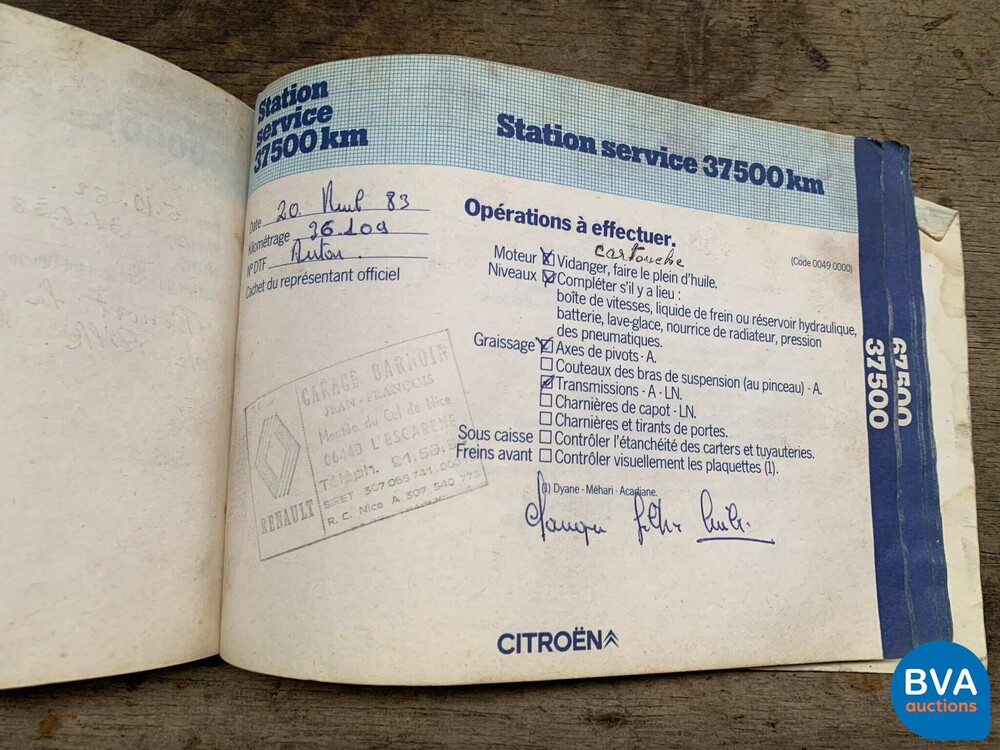 Station
service
37500 km
Date 20. 83
Kilométrage 36.109
N° DTF
Cachet du représentant officiel
GARAGE BARNOIN
JEAN-FRANÇOIS
Montée du Col de Nice
06440 L'ESCARENE
Téléph. 91.55.
SIRET 307.085 741.000
R.C. Nice A 307 540 775
RENAULT
Station service 37500 km
Opérations à effectuer.
(Code 0049 0000)
cartouche
Moteur Vidanger, faire le plein d'huile.
Niveaux Compléter s'il y a lieu :
boîte de vitesses, liquide de frein ou réservoir hydraulique,
batterie, lave-glace, nourrice de radiateur, pression
des pneumatiques.
Graissage Axes de pivots - A.
Couteaux des bras de suspension (au pinceau) - A.
Transmissions - A - LN.
Charnières de capot - LN.
Charnières et tirants de portes.
Sous caisse Contrôler l'étanchéité des carters et tuyauteries.
Freins avant Contrôler visuellement les plaquettes (1).
(1) Dyane - Méhari - Acadiane.
filtre huile.
CITROËN
37500
67500
BVA
auctions